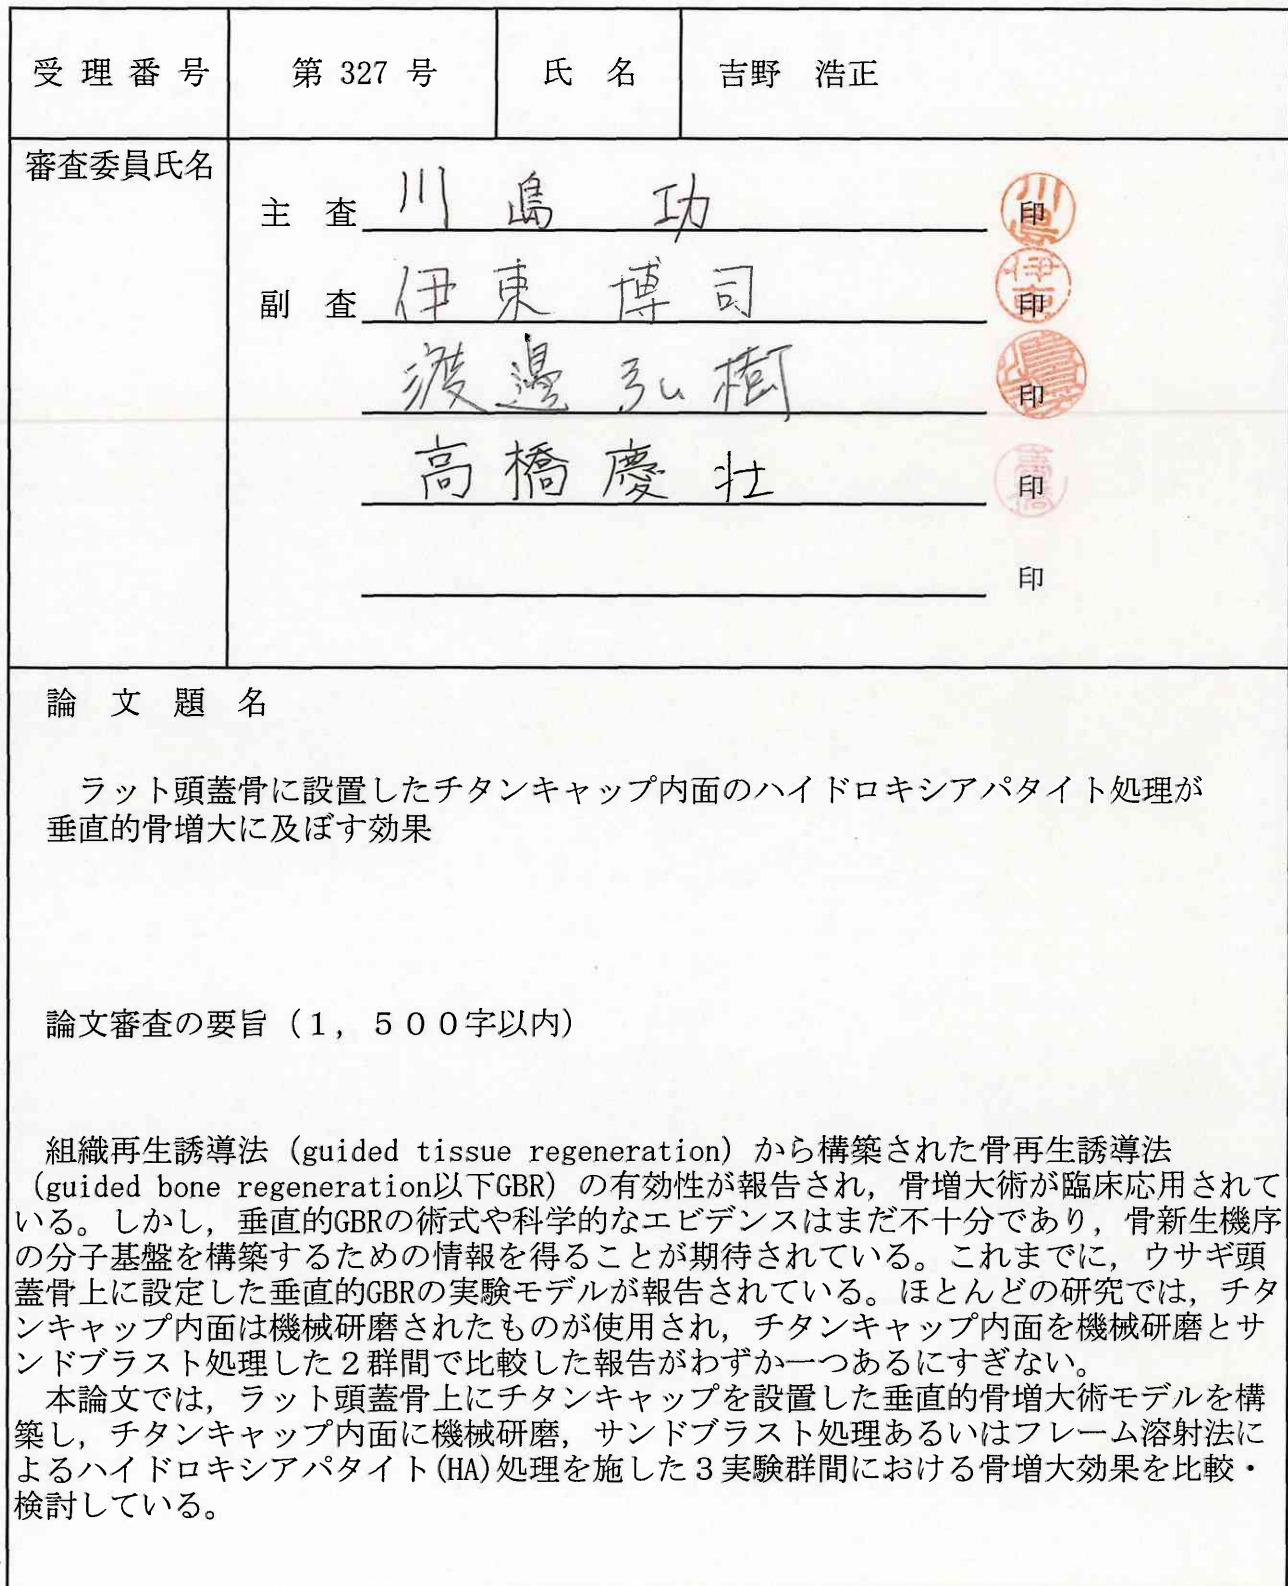 受 理 番 号　第 327 号　氏　名　吉野　浩正
審査委員氏名
主　査 川 島 功 印
副　査 伊 東 博 司 印
渡 邊 弘 樹 印
高 橋 慶 壮 印
印
論　文　題　名
ラット頭蓋骨に設置したチタンキャップ内面のハイドロキシアパタイト処理が
垂直的骨増大に及ぼす効果
論文審査の要旨（１，５００字以内）
組織再生誘導法（guided tissue regeneration）から構築された骨再生誘導法
（guided bone regeneration以下GBR）の有効性が報告され，骨増大術が臨床応用されて
いる。しかし，垂直的GBRの術式や科学的なエビデンスはまだ不十分であり，骨新生機序
の分子基盤を構築するための情報を得ることが期待されている。これまでに，ウサギ頭
蓋骨上に設定した垂直的GBRの実験モデルが報告されている。ほとんどの研究では，チタ
ンキャップ内面は機械研磨されたものが使用され，チタンキャップ内面を機械研磨とサ
ンドブラスト処理した２群間で比較した報告がわずか一つあるにすぎない。
本論文では，ラット頭蓋骨上にチタンキャップを設置した垂直的骨増大術モデルを構
築し，チタンキャップ内面に機械研磨，サンドブラスト処理あるいはフレーム溶射法に
よるハイドロキシアパタイト(HA)処理を施した３実験群間における骨増大効果を比較・
検討している。